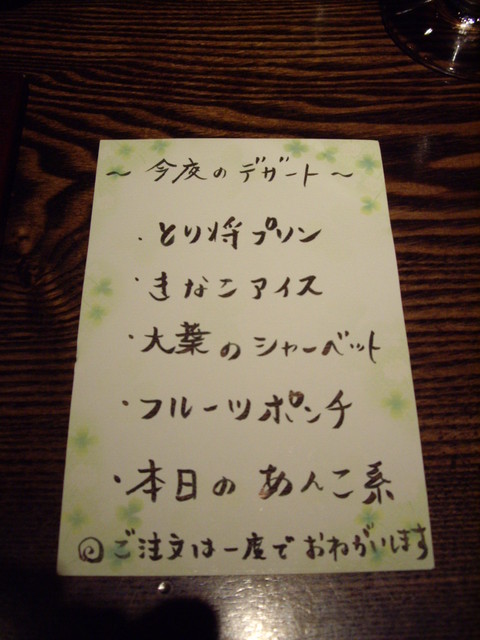 ～今夜のデザート～
・とり将プリン
・きなこアイス
・大葉のシャーベット
・フルーツポンチ
・本日のあんこ系
◎ご注文は一度でおねがいします